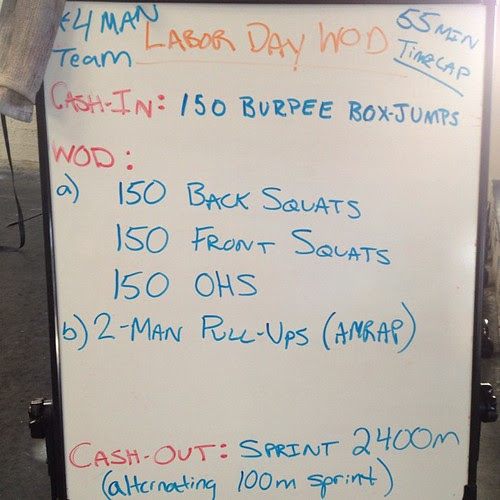 *4 MAN Team
LABOR DAY WOD
55 MIN TIMECAP
CASH-IN: 150 BURPEE BOX-JUMPS
WOD:
a) 150 BACK SQUATS
150 FRONT SQUATS
150 OHS
b) 2-MAN PULL-UPS (AMRAP)
CASH-OUT: SPRINT 2400m
(alternating 100m sprint)